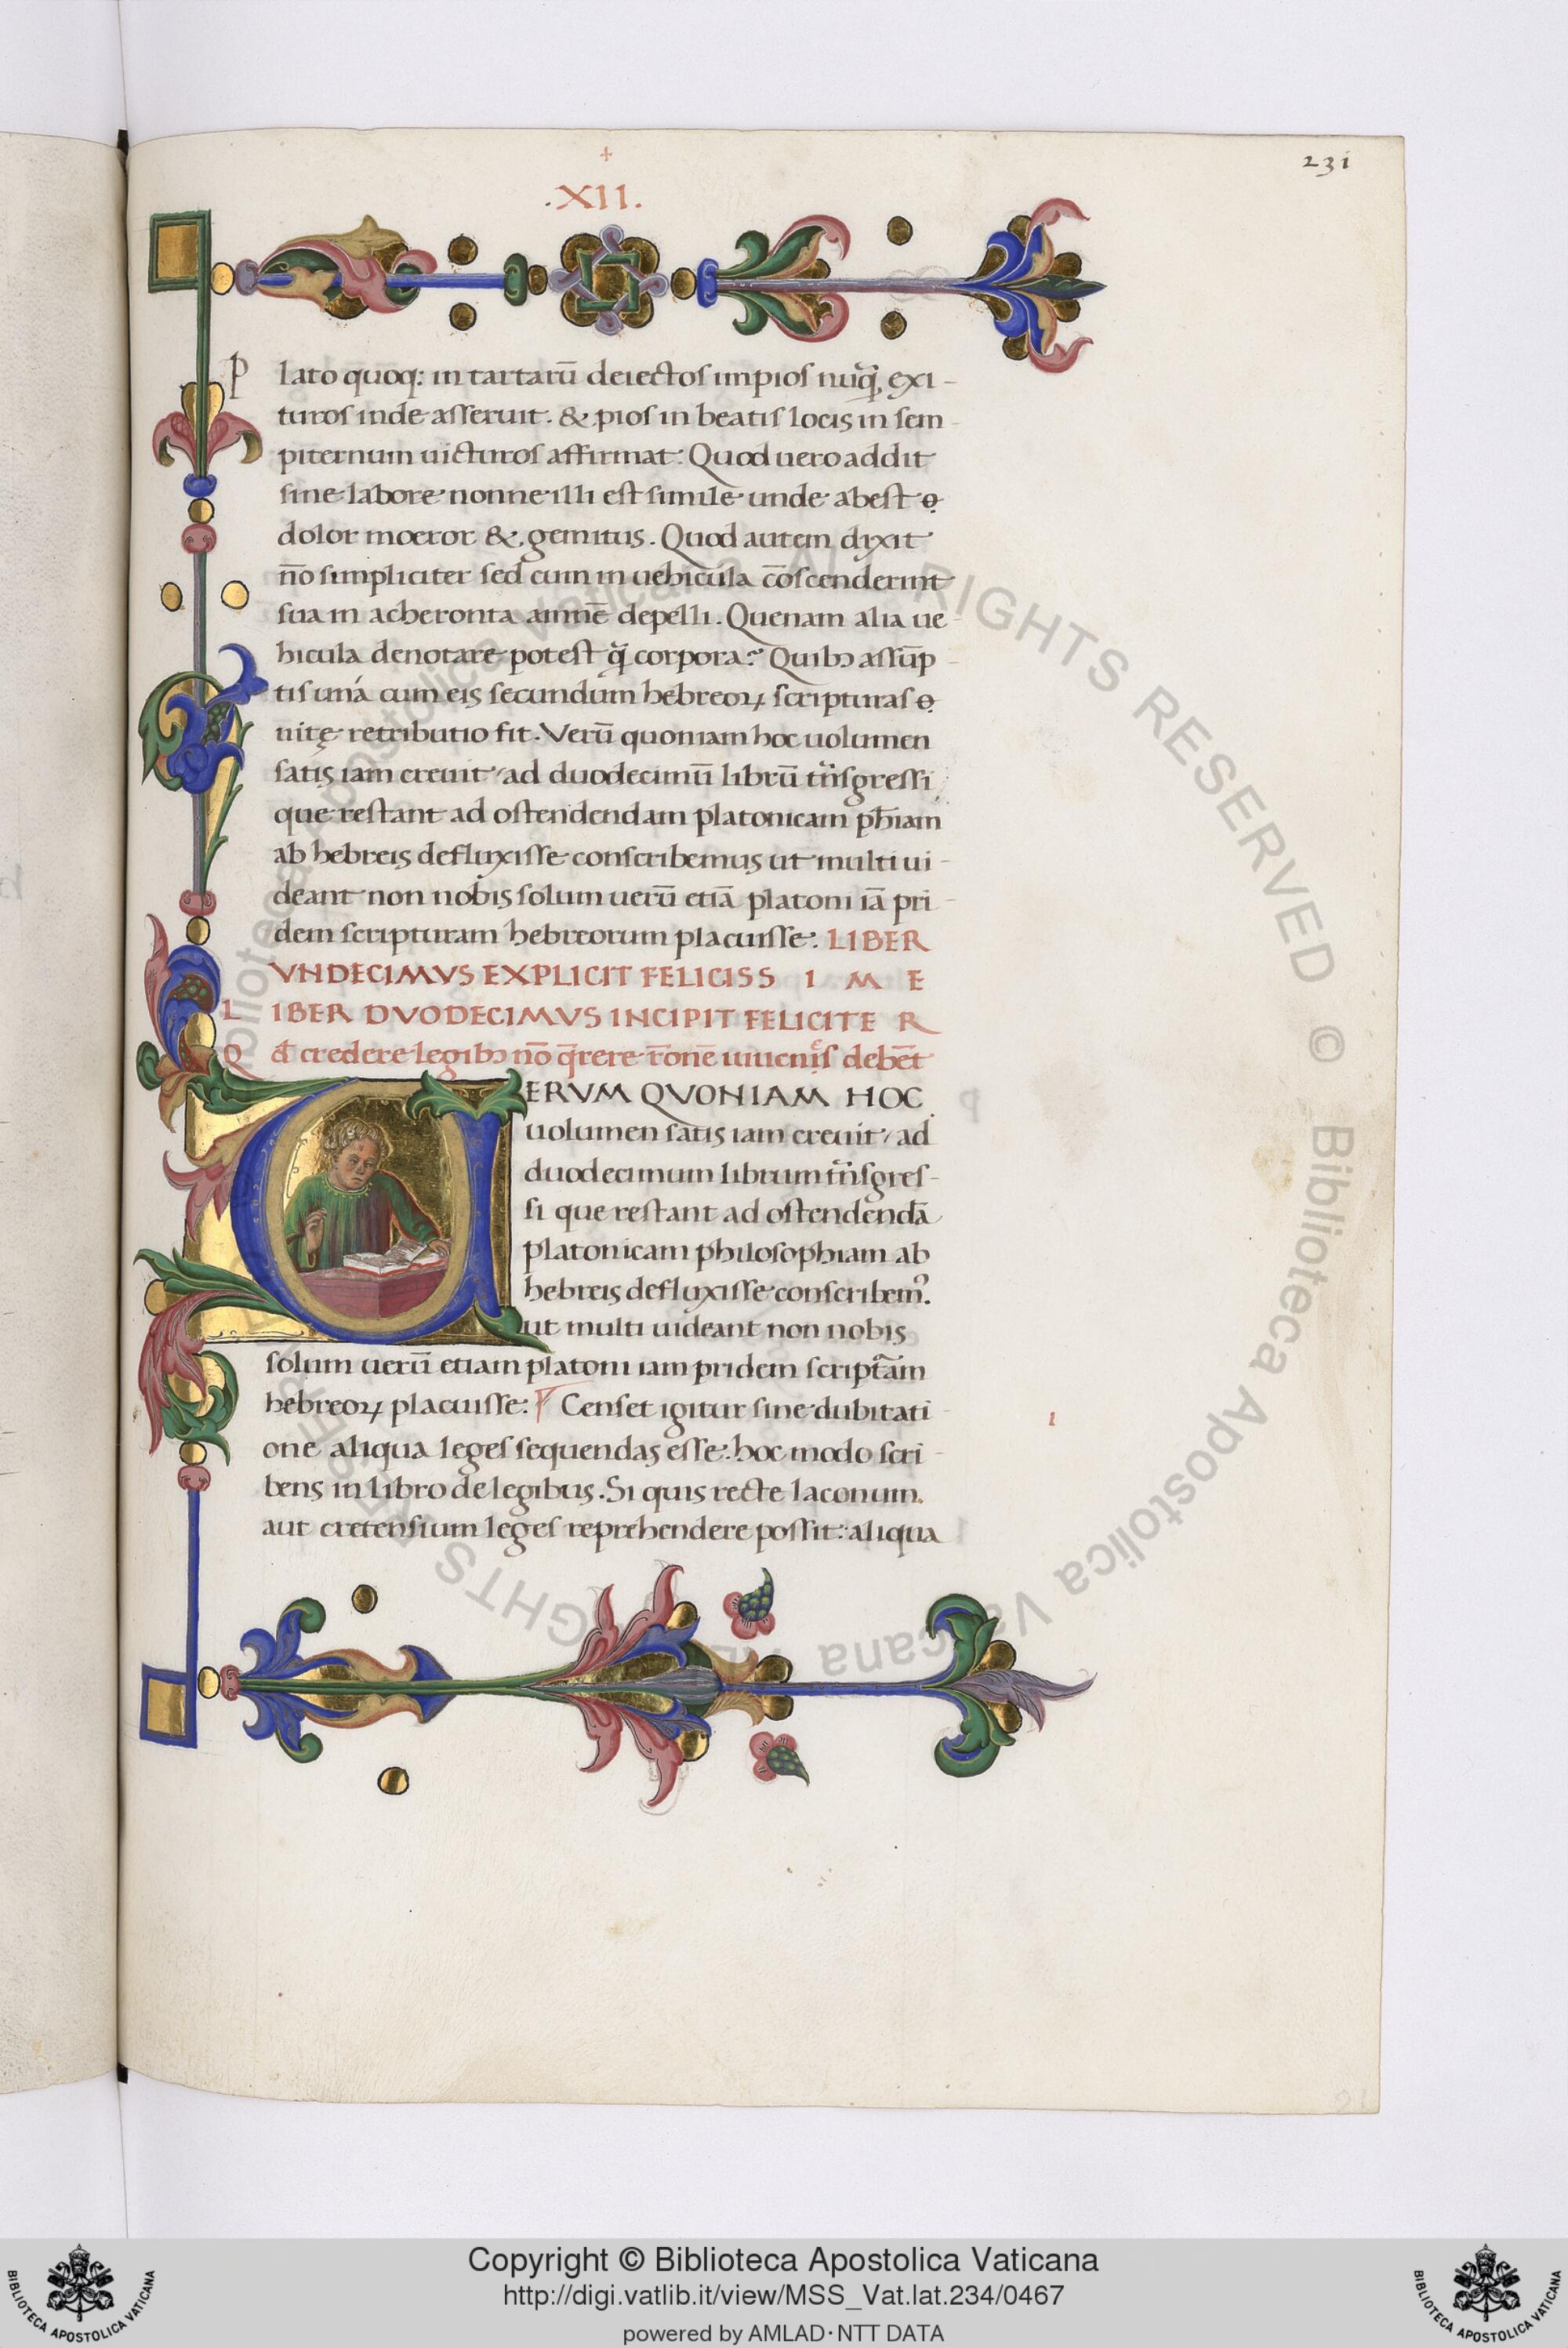 231
+
.XII.
Plato quoq: in tartarū deiectos impios nūq̃, exi-
turos inde asseruit. & pios in beatis locis in sem-
piternum uicturos affirmat: Quod uero addit
sine labore nonne illi est simile unde abest o̵
dolor moeror & gemitus. Quod autem dixit
nō simpliciter sed cum in uehicula cōscenderint
sua in acheronta amnē depelli. Quenam alia ue-
hicula denotare potest q̃ corpora? Quibꝫ assūp-
tis uná cum eis secundum hebreoꝝ scripturas o̵
nitę retributio fit. Verū quoniam hoc uolumen
satis iam creuit / ad duodecimū librū trãsgressi
que restant ad ostendendam platonicam ph̄iam
ab hebreis defluxisse conscribemus ut multi ui-
deant non nobis solum uerū etiā platoni iā pri-
dem scripturam hebreorum placuisse: LIBER
VNDECIMVS EXPLICIT FELICISS I M E
LIBER DVODECIMVS INCIPIT FELICITE R
Qd̄ credere legibꝫ nō q̄rere rōnē iuuenes debēt
VERVM QVONIAM HOC
uolumen satis iam creuit / ad
duodecimum librum trãsgres-
si que restant ad ostendendā
platonicam philosophiam ab
hebreis defluxisse conscribem⁹.
ut multi uideant non nobis
solum uerū etiam platoni iam pridem scripturam
hebreoꝝ placuisse: Censet igitur sine dubitati-
1
one aliqua leges sequendas esse: hoc modo scri-
bens in libro de legibus. Si quis recte laconum
aut cretensium leges reprehendere possit: aliqua
Biblioteca Apostolica Vaticana ALL RIGHTS RESERVED © Biblioteca Apostolica Vaticana ALL RIGHTS RESERVED
BIBLIOTECA APOSTOLICA VATICANA
Copyright © Biblioteca Apostolica Vaticana
http://digi.vatlib.it/view/MSS_Vat.lat.234/0467
powered by AMLAD·NTT DATA
BIBLIOTECA APOSTOLICA VATICANA